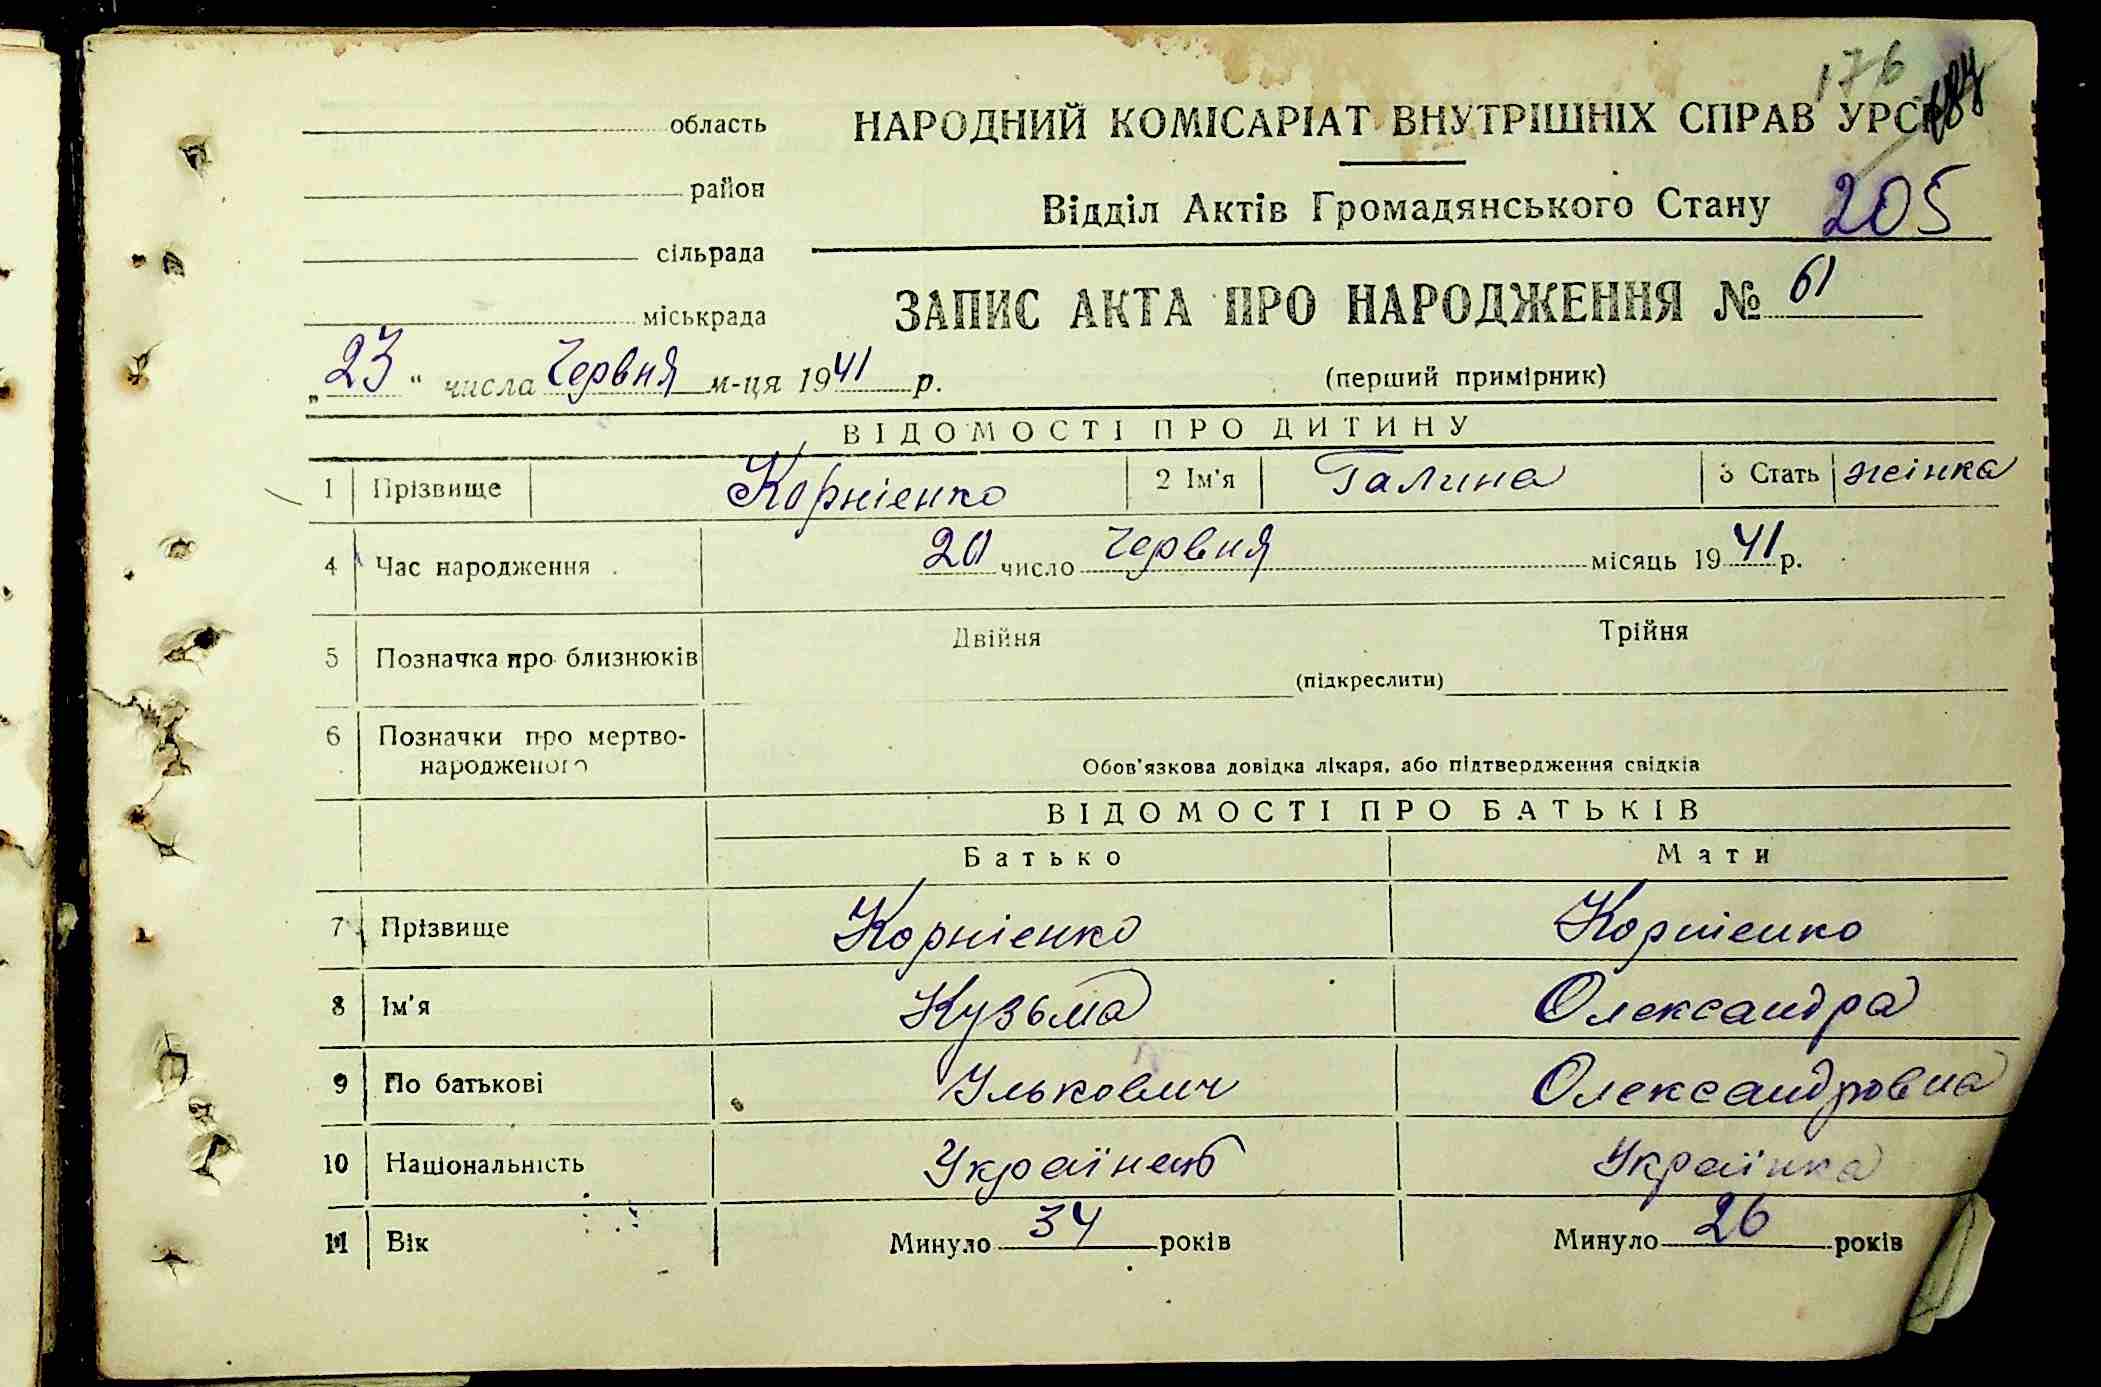 176
область
НАРОДНИЙ КОМІСАРІАТ ВНУТРІШНІХ СПРАВ УРСР
район
Відділ Актів Громадянського Стану 205
сільрада
ЗАПИС АКТА ПРО НАРОДЖЕННЯ № 61
міськрада
„23" числа Червня м-ця 1941 р.
(перший примірник)
ВІДОМОСТІ ПРО ДИТИНУ
1 Прізвище Корнієнко 2 Ім'я Галина 3 Стать жінка
4 Час народження 20 число Червня місяць 1941 р.
5 Позначка про близнюків Двійня Трійня
(підкреслити)
6 Позначки про мертво-
народженого
Обов'язкова довідка лікаря, або підтвердження свідків
ВІДОМОСТІ ПРО БАТЬКІВ
Батько Мати
7 Прізвище Корнієнко Корнієнко
8 Ім'я Кузьма Олександра
9 По батькові Улькович Олександровна
10 Національність Українець Українка
11 Вік Минуло 34 років Минуло 26 років